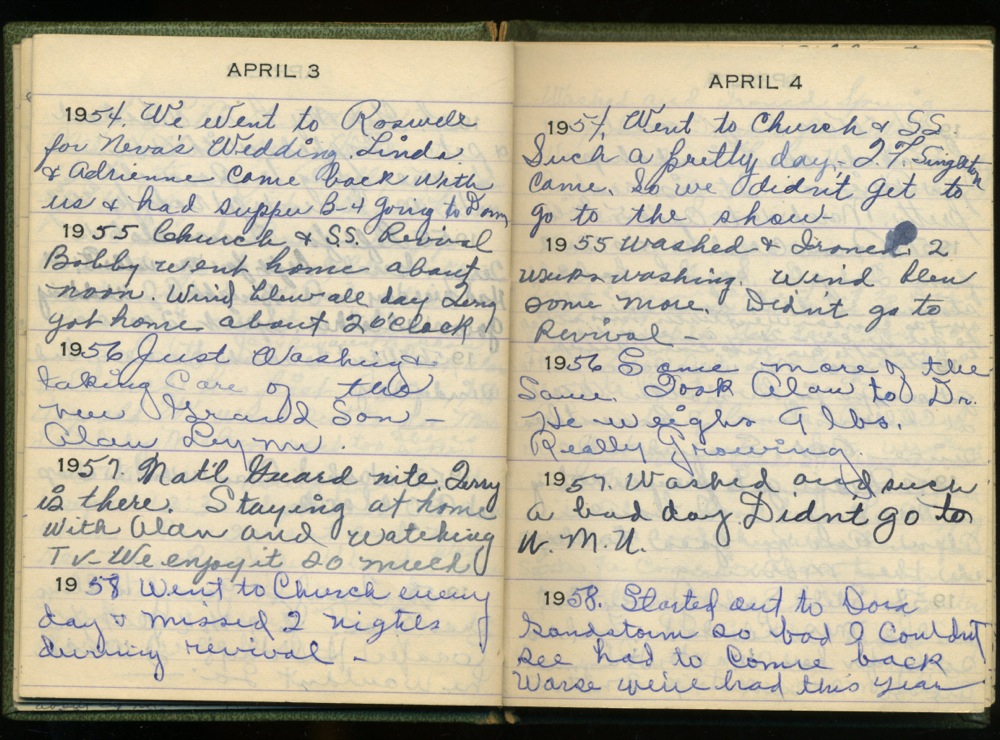 APRIL 3
1954. We Went to Roswell
for Neva's Wedding. Linda
& Adrienne Came back with
us & had supper B-4 going to Dora
1955 Church & SS. Revival
Bobby went home about
noon. Wind blew all day Terry
got home about 2 o'clock
1956 Just Washing &
taking Care of the
new Grand Son -
Alan Lynn.
1957. Nat'l Guard nite. Terry
is there. Staying at home
with Alan and watching
TV - We enjoy it so much
1958 Went to Church every
day & missed 2 nights
during revival -
APRIL 4
1954. Went to Church & SS
Such a pretty day - J. T. Singleton
Came. So we didn't get to
go to the show -
1955 Washed & Ironed 2
weeks washing. Wind blew
some more. Didn't go to
Revival -
1956 Some more of the
Same. Took Alan to Dr.
He weighs 9 lbs.
Really Growing.
1957. Washed and such
a bad day Didn't go to
W. M. U.
1958. Started out to Dora
Sandstorm so bad I Couldn't
see had to Come back
Worse we've had this year